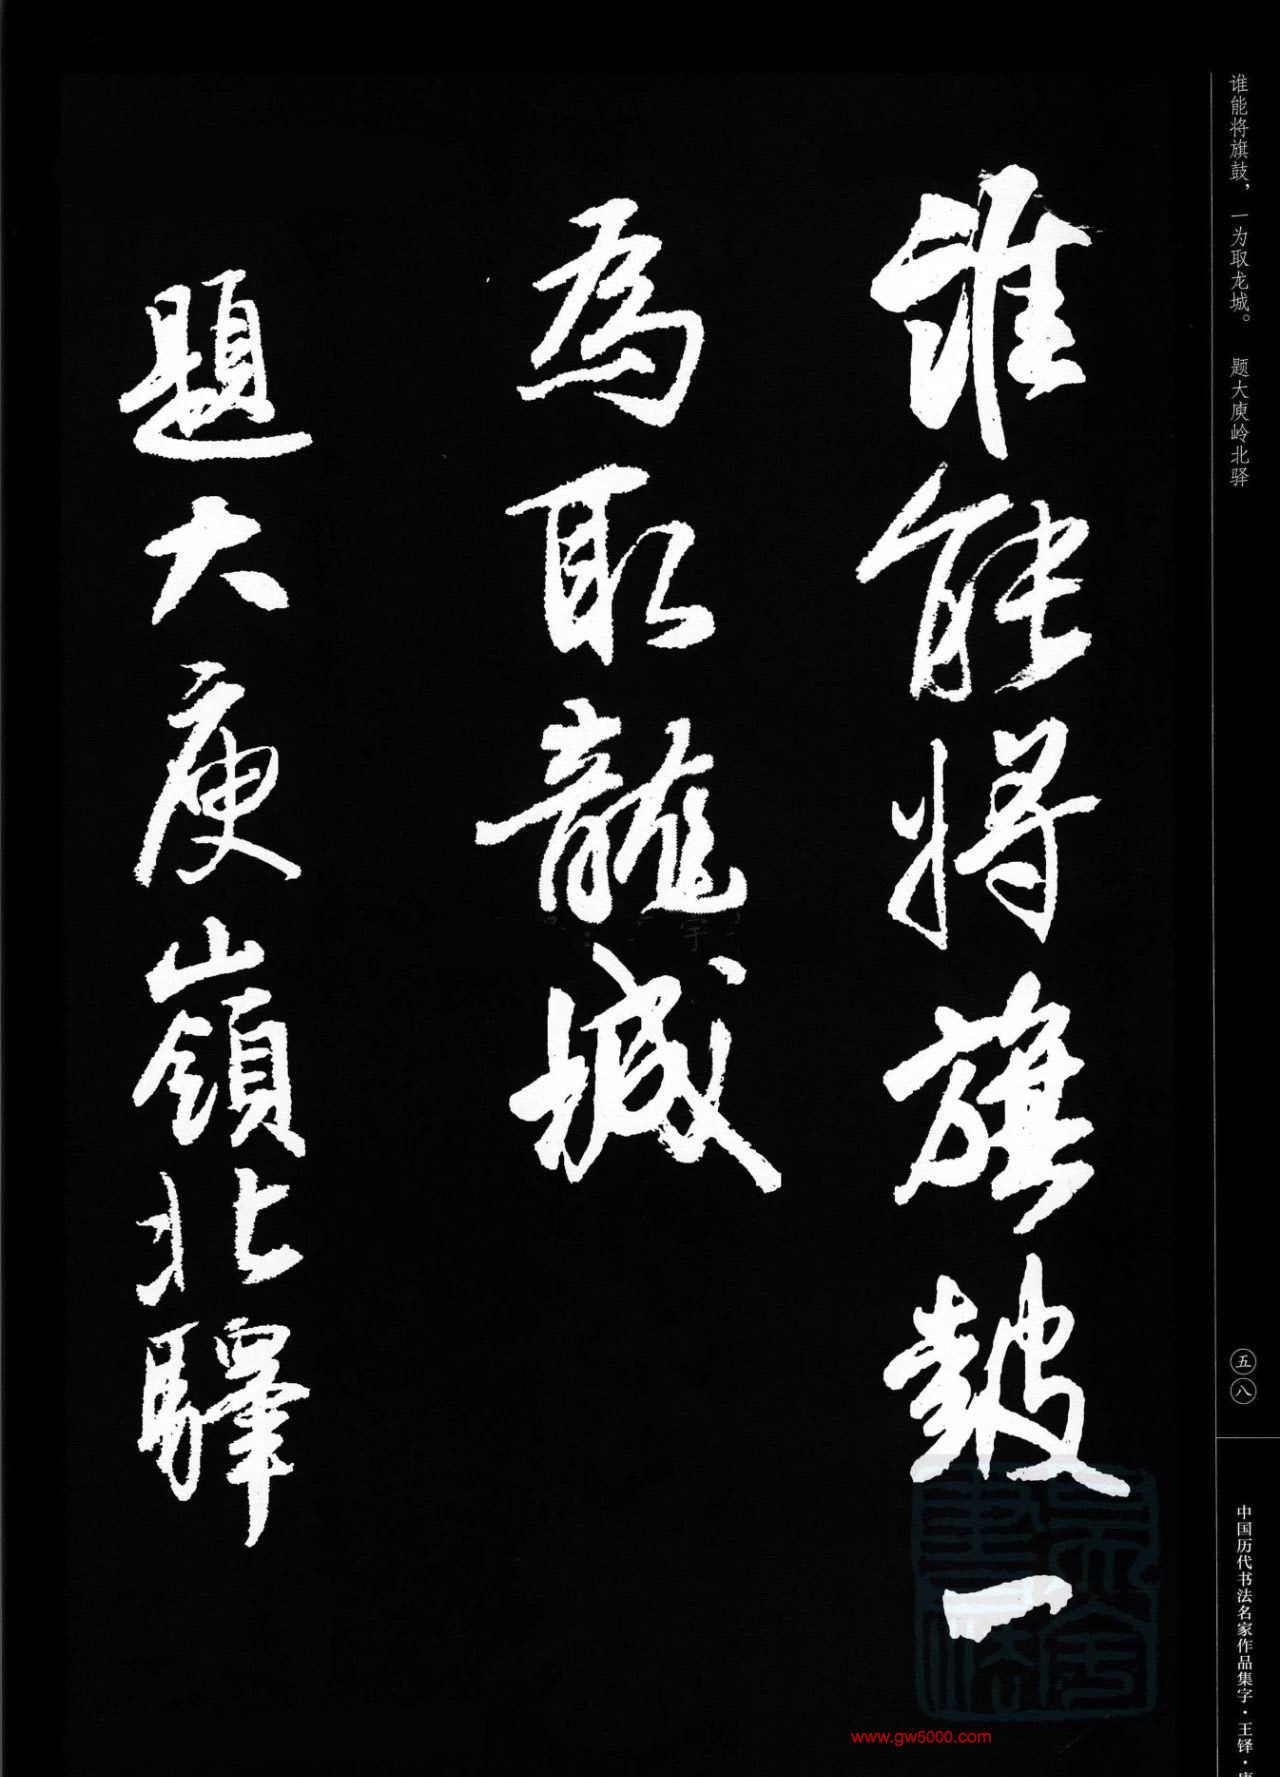 谁能将旗鼓，一为取龙城。 题大庾岭北驿
五八
中国历代书法名家作品集字·王铎·
誰能將旗鼓一
為取龍城
題大庾嶺北驛
www.gw5000.com